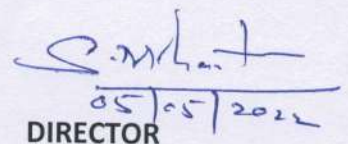 05/05/2022
DIRECTOR